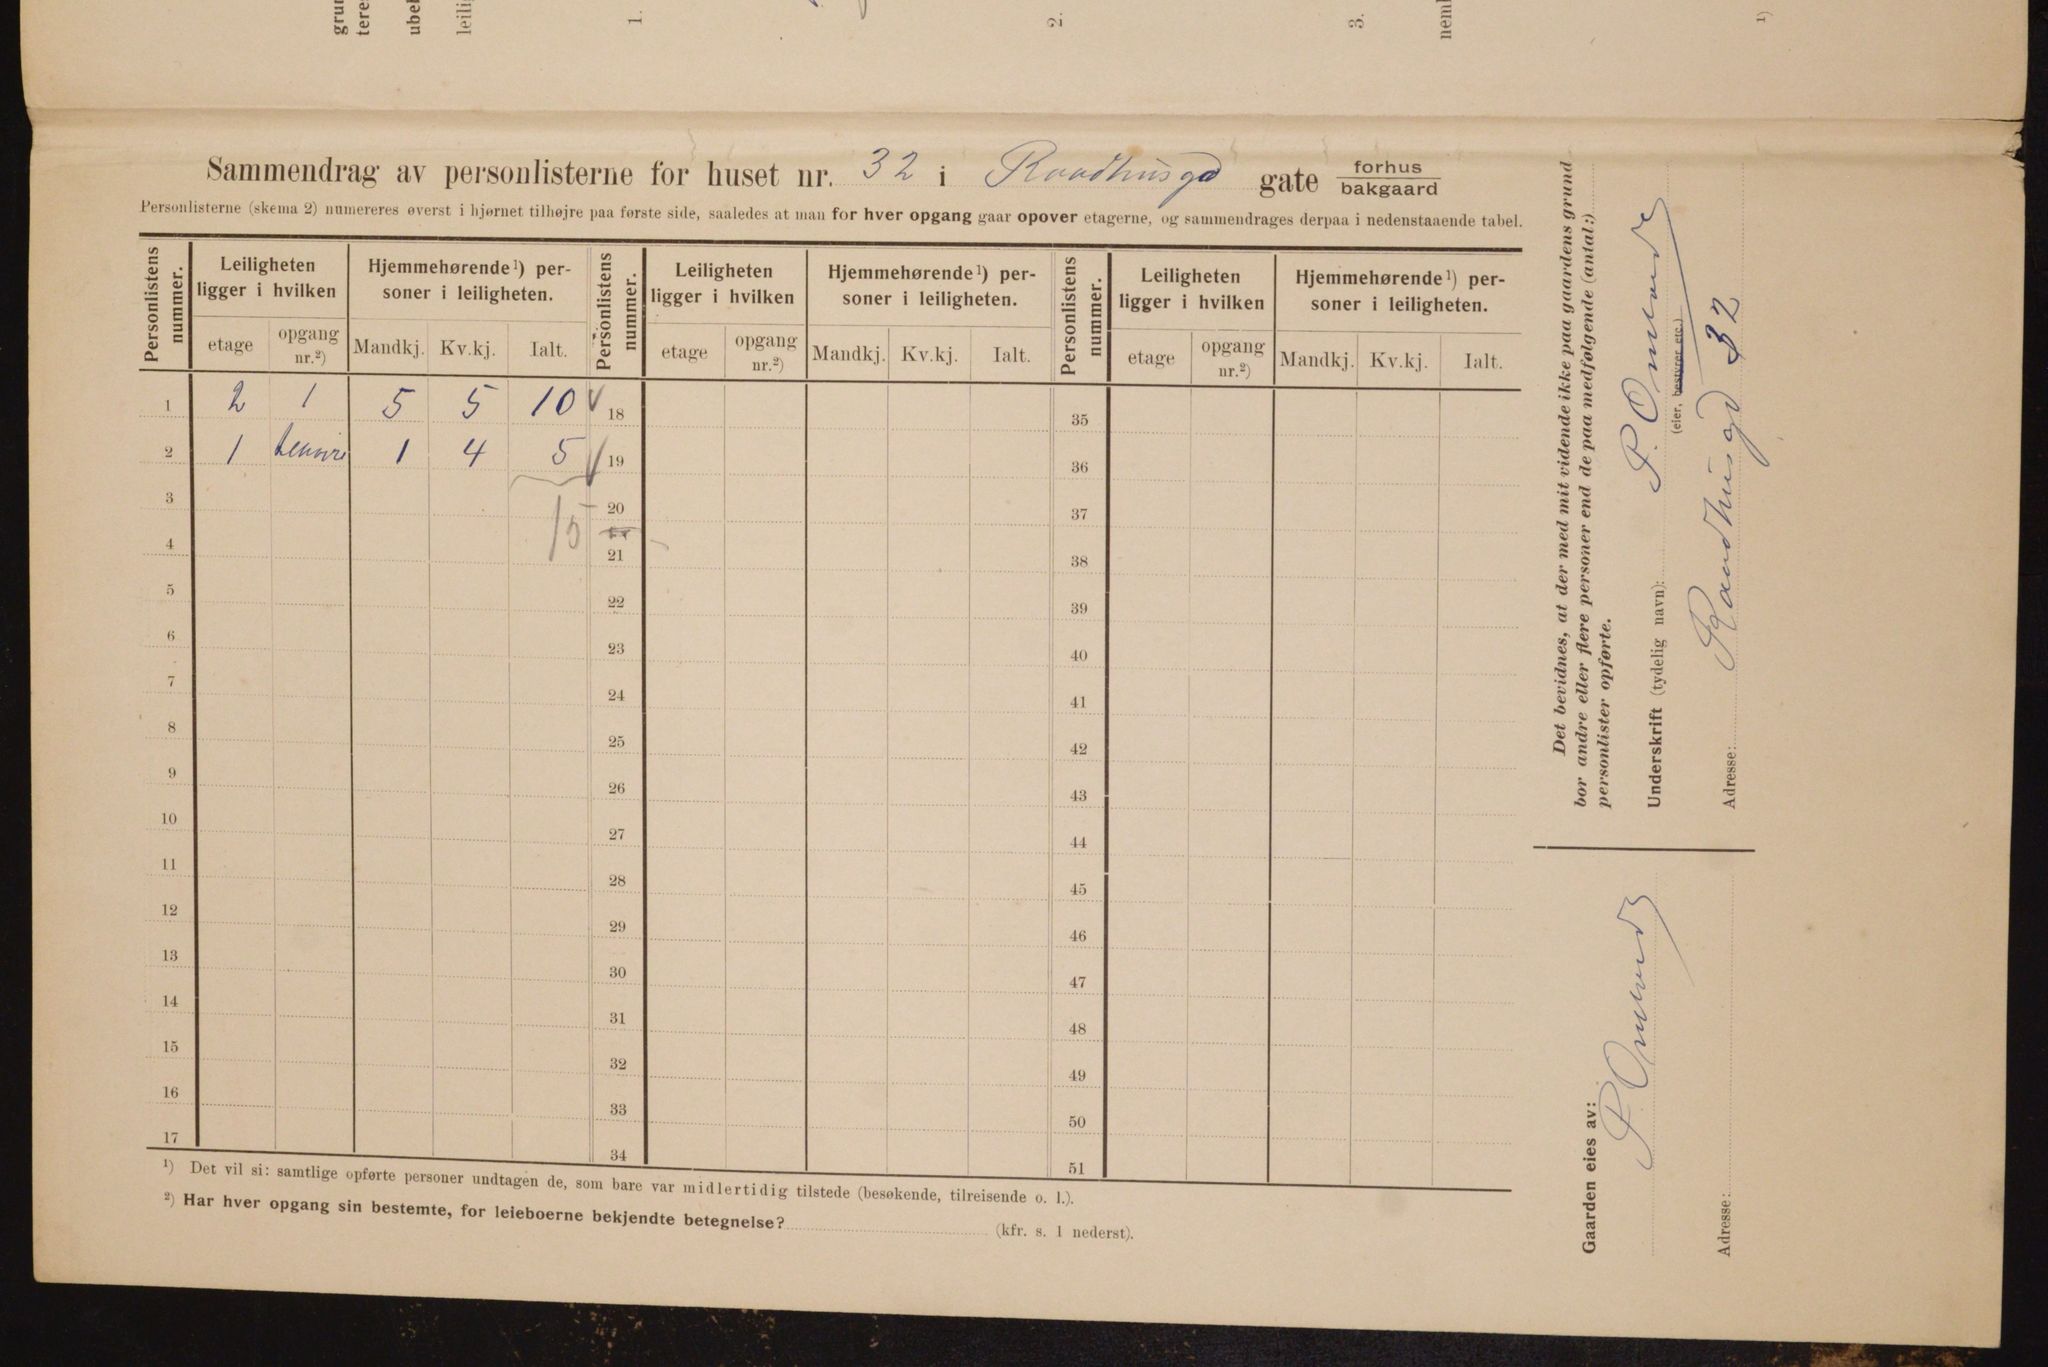 grun
tere
ubel
leilig
1.
2.
3.
neml
1)
Sammendrag av personlisterne for huset nr. 32 i Raadhusgd gate forhus
bakgaard
Personlisterne (skema 2) numereres øverst i hjørnet tilhøjre paa første side, saaledes at man for hver opgang gaar opover etagerne, og sammendrages derpaa i nedenstaaende tabel.
Personlistens nummer. Leiligheten ligger i hvilken Hjemmehørende¹) personer i leiligheten. Personlistens nummer. Leiligheten ligger i hvilken Hjemmehørende¹) personer i leiligheten. Personlistens nummer. Leiligheten ligger i hvilken Hjemmehørende¹) personer i leiligheten.
etage opgang nr.²) Mandkj. Kv.kj. Ialt. etage opgang nr.²) Mandkj. Kv.kj. Ialt. etage opgang nr.²) Mandkj. Kv.kj. Ialt.
1 2 1 5 5 10 18 35
2 1 1 4 5 19 36
3 20 37
4 15 21 38
5 22 39
6 23 40
7 24 41
8 25 42
9 26 43
10 27 44
11 28 45
12 29 46
13 30 47
14 31 48
15 32 49
16 33 50
17 34 51
¹) Det vil si: samtlige opførte personer undtagen de, som bare var midlertidig tilstede (besøkende, tilreisende o. l.).
²) Har hver opgang sin bestemte, for leieboerne bekjendte betegnelse? (kfr. s. 1 nederst).
Det bevidnes, at der med mit vidende ikke paa gaardens grund
bor andre eller flere personer end de paa medfølgende (antal:)
personlister opførte.
Underskrift (tydelig navn): P. Omund
(eier, bestyrer etc.)
Adresse: Raadhusgd 32
Gaarden eies av: P. Omund
Adresse: